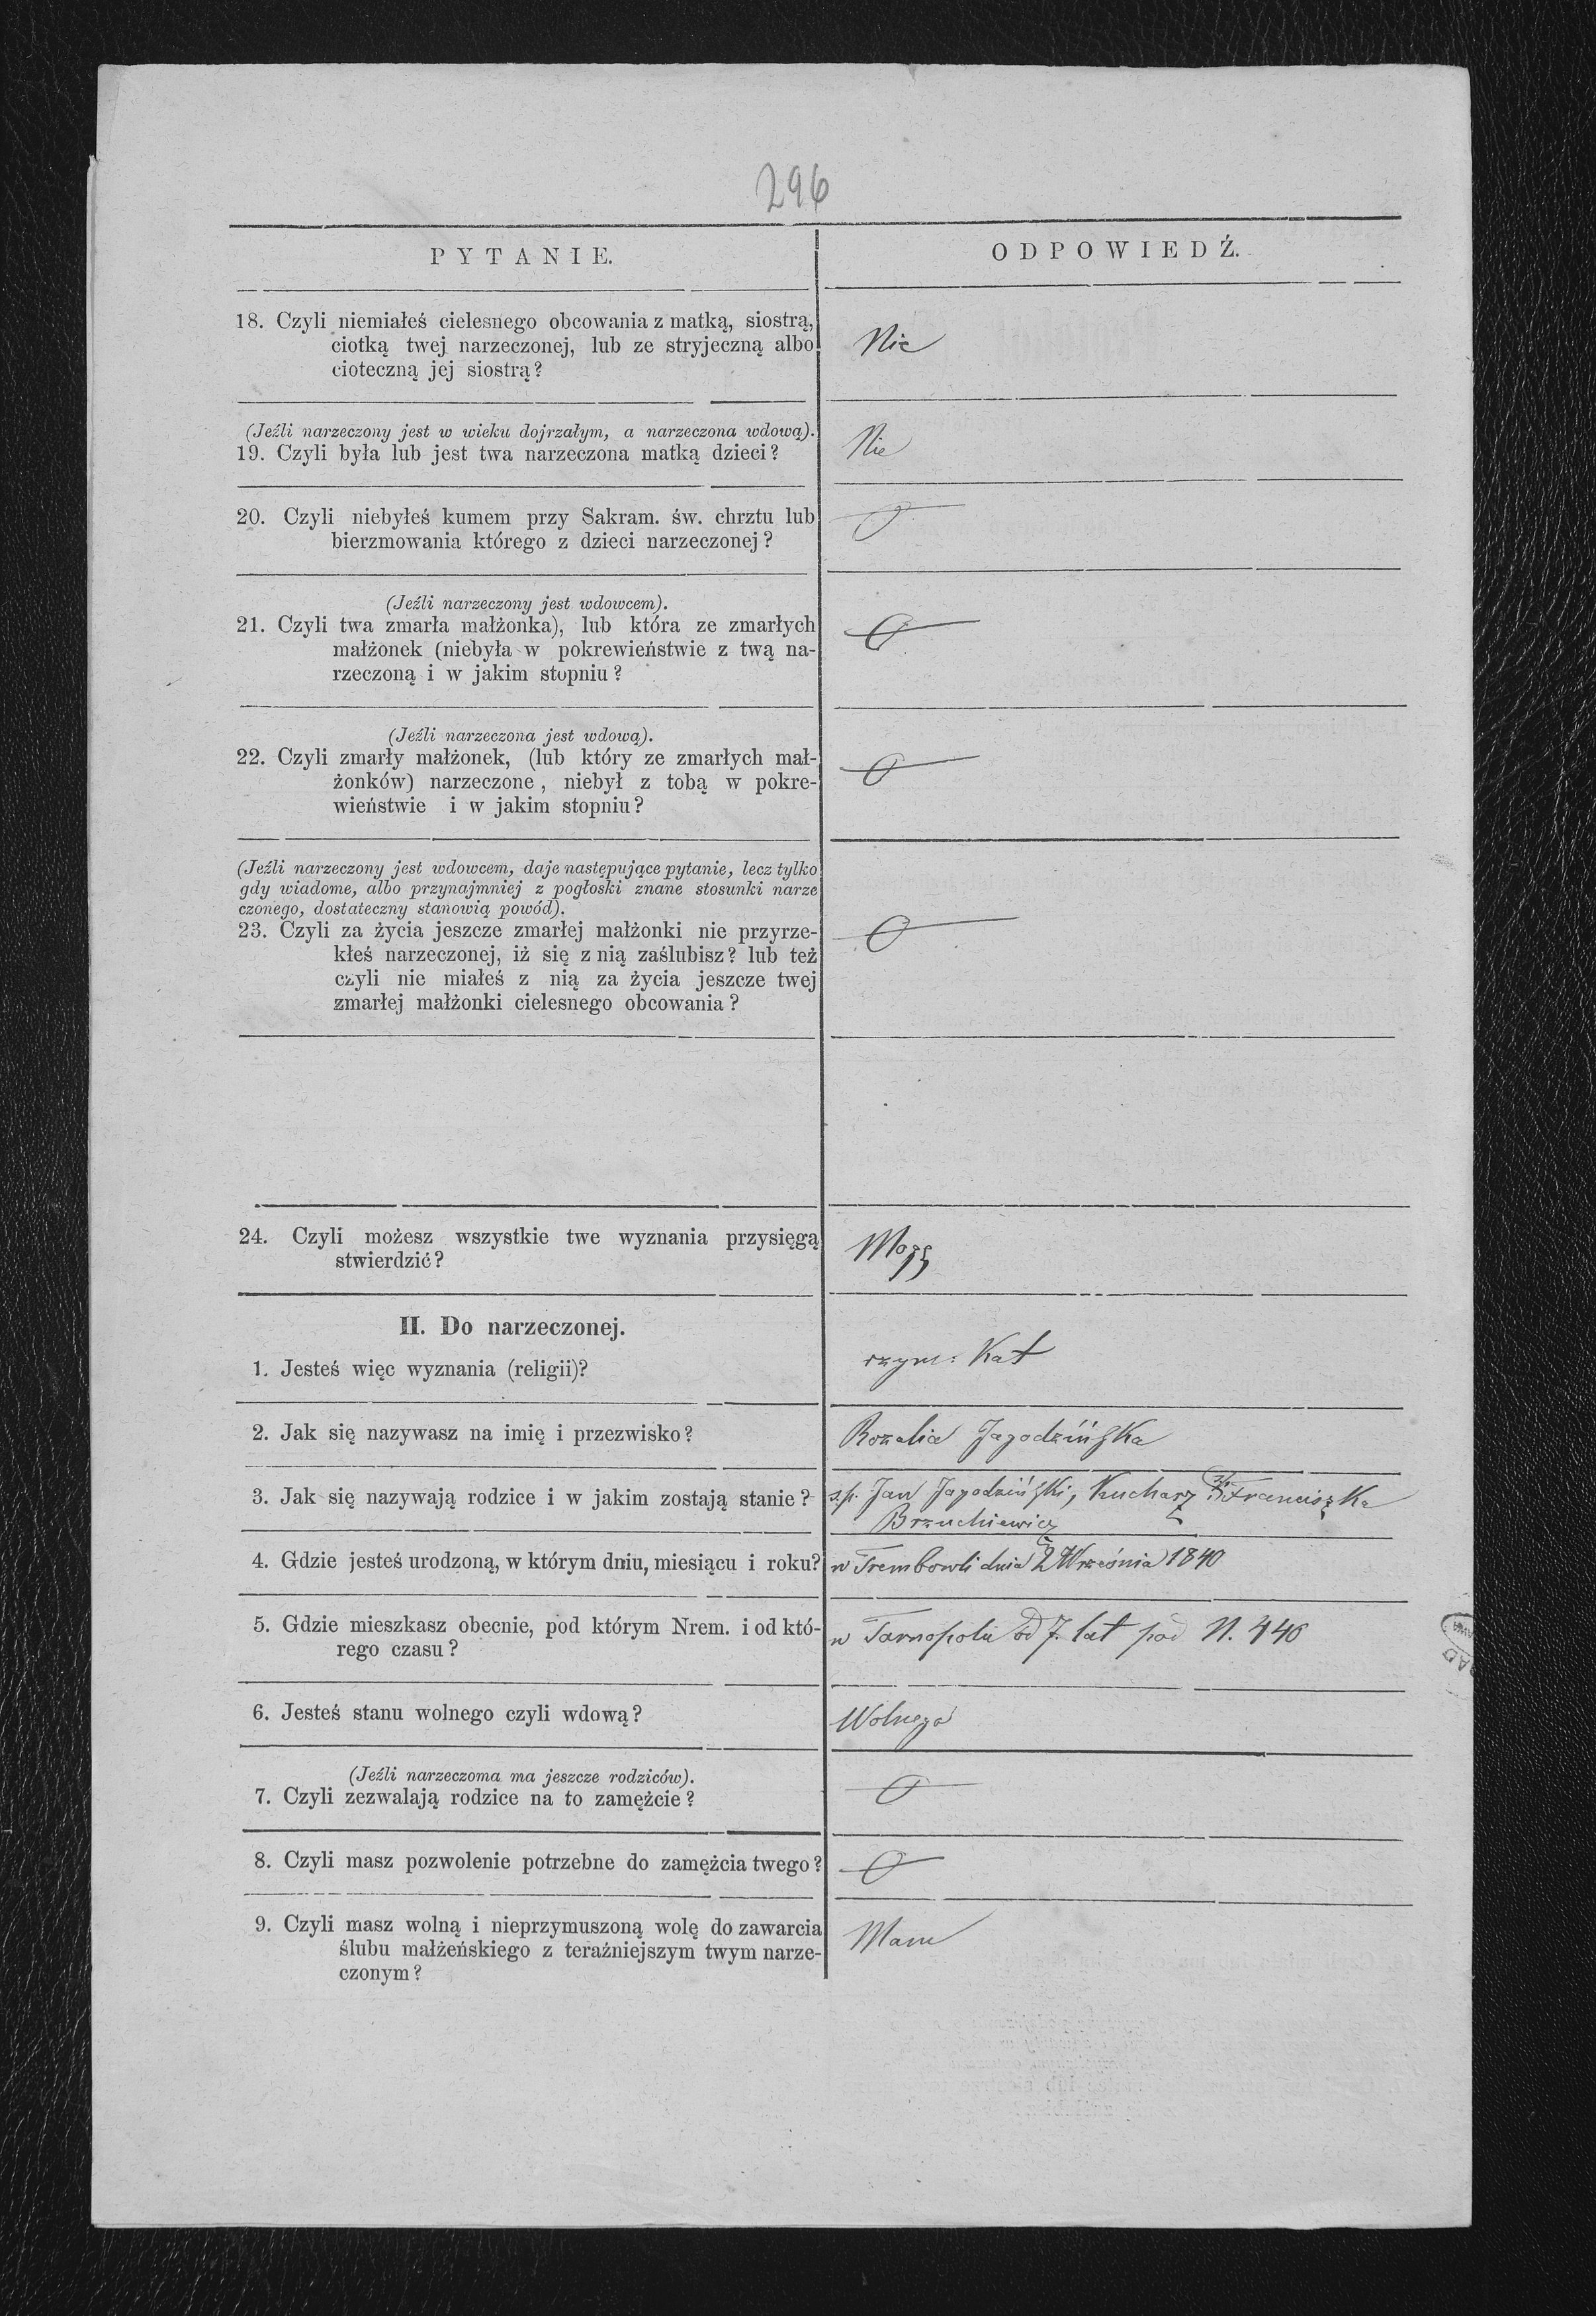 296
PYTANIE.
ODPOWIEDŹ.
18. Czyli niemiałeś cielesnego obcowania z matką, siostrą,
ciotką twej narzeczonej, lub ze stryjeczną albo
cioteczną jej siostrą?
Nie
(Jeźli narzeczony jest w wieku dojrzałym, a narzeczona wdową).
19. Czyli była lub jest twa narzeczona matką dzieci?
Nie
20. Czyli niebyłeś kumem przy Sakram. św. chrztu lub
bierzmowania którego z dzieci narzeczonej?
0
(Jeźli narzeczony jest wdowcem).
21. Czyli twa zmarła małżonka), lub która ze zmarłych
małżonek (niebyła w pokrewieństwie z twą na-
rzeczoną i w jakim stopniu?
0
(Jeźli narzeczona jest wdową).
22. Czyli zmarły małżonek, (lub który ze zmarłych mał-
żonków) narzeczone, niebył z tobą w pokre-
wieństwie i w jakim stopniu?
0
(Jeźli narzeczony jest wdowcem, daje następujące pytanie, lecz tylko
gdy wiadome, albo przynajmniej z pogłoski znane stosunki narze
czonego, dostateczny stanowią powód).
23. Czyli za życia jeszcze zmarłej małżonki nie przyrze-
kłeś narzeczonej, iż się z nią zaślubisz? lub też
czyli nie miałeś z nią za życia jeszcze twej
zmarłej małżonki cielesnego obcowania?
0
24. Czyli możesz wszystkie twe wyznania przysięgą
stwierdzić?
Mogę
II. Do narzeczonej.
1. Jesteś więc wyznania (religii)?
rzym: Kat
2. Jak się nazywasz na imię i przezwisko?
Rozalia Jagodzińska
3. Jak się nazywają rodzice i w jakim zostają stanie?
ś.p. Jan Jagodziński, Kucharz Franciszka
Brzuchiewicz
4. Gdzie jesteś urodzoną, w którym dniu, miesiącu i roku?
w Trembowli dnia 2 Września 1840
5. Gdzie mieszkasz obecnie, pod którym Nrem. i od któ-
rego czasu?
w Tarnopolu od 7. lat pod N. 446
6. Jesteś stanu wolnego czyli wdową?
Wolnego
(Jeźli narzeczoma ma jeszcze rodziców).
7. Czyli zezwalają rodzice na to zamężcie?
0
8. Czyli masz pozwolenie potrzebne do zamężcia twego?
0
9. Czyli masz wolną i nieprzymuszoną wolę do zawarcia
ślubu małżeńskiego z teraźniejszym twym narze-
czonym?
Mam